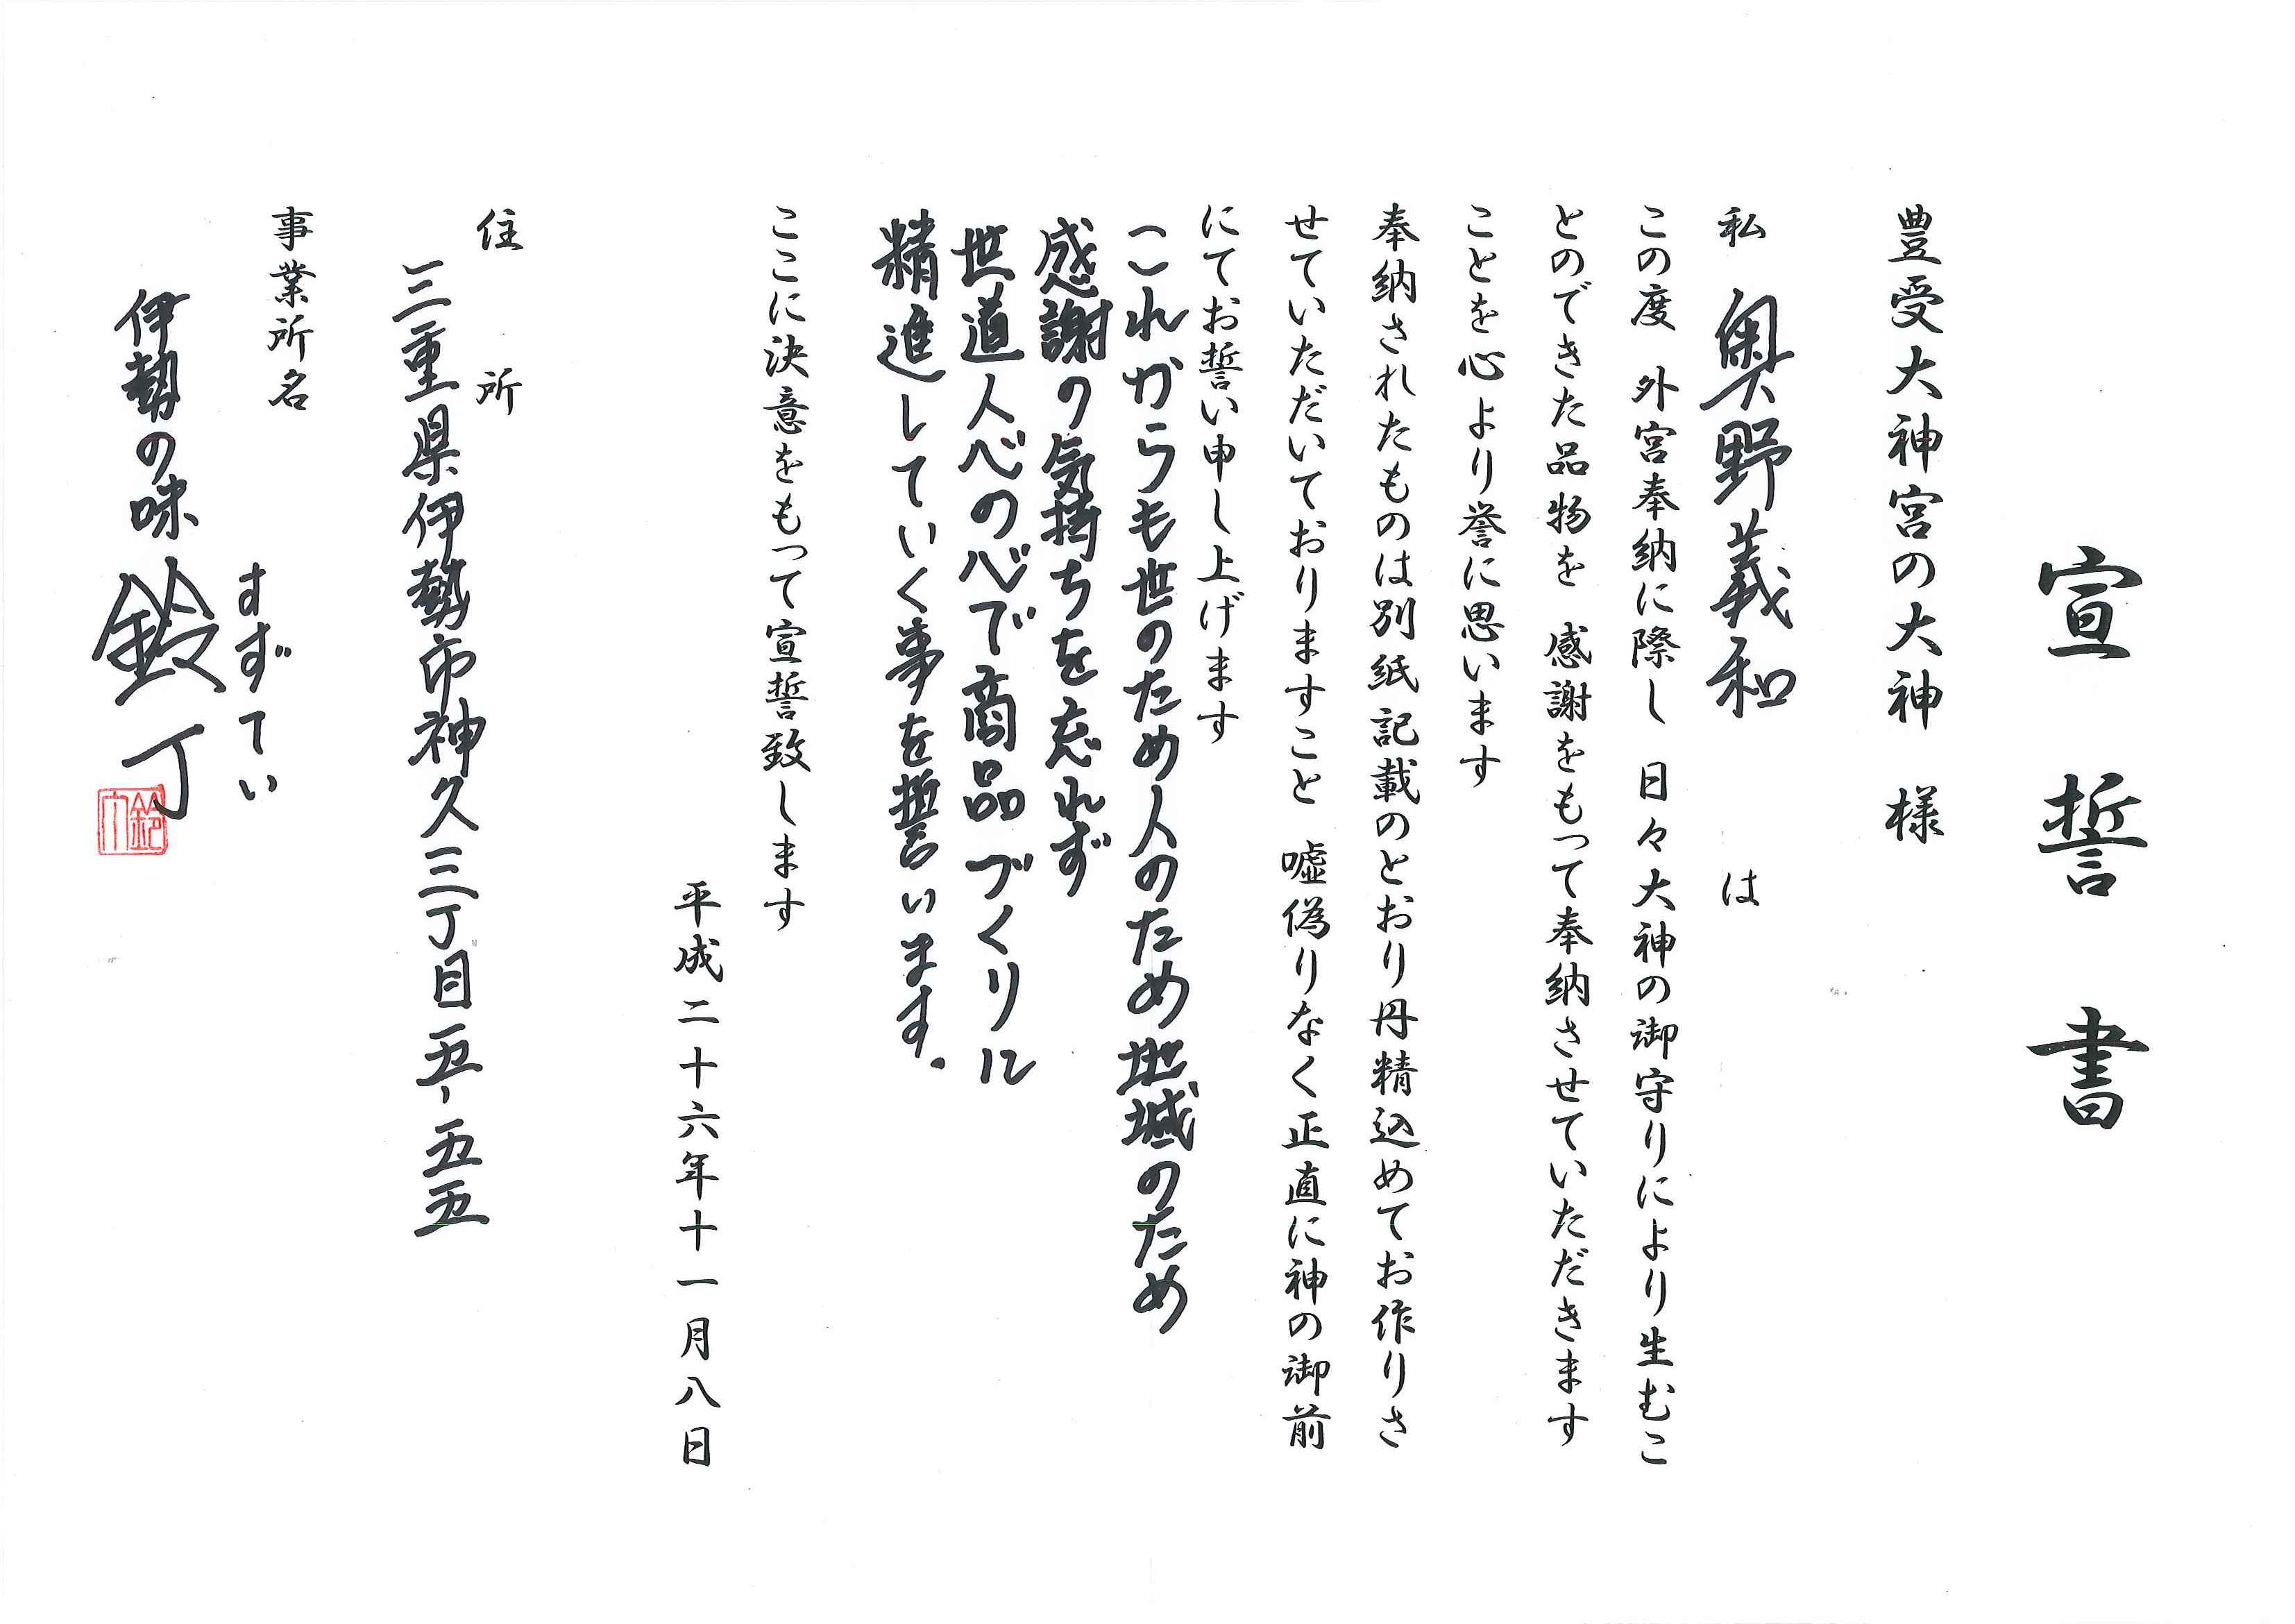 宣誓書
豊受大神宮の大神 様
私 奥野義和 は
この度 外宮奉納に際し 日々大神の御守りにより生むこ
とのできた品物を 感謝をもって奉納させていただきます
ことを心より誉に思います
奉納されたものは別紙記載のとおり丹精込めてお作りさ
せていただいておりますこと 嘘偽りなく正直に神の御前
にてお誓い申し上げます
これからも世のため人のため地域のため
感謝の気持ちを忘れず
世道人心の心で商品づくりに
精進していく事を誓います。
ここに決意をもって宣誓致します
平成二十六年十一月八日
住所
三重県伊勢市神久三丁目五-五五
事業所名
すずてい
伊勢の味 鈴丁
鈴丁